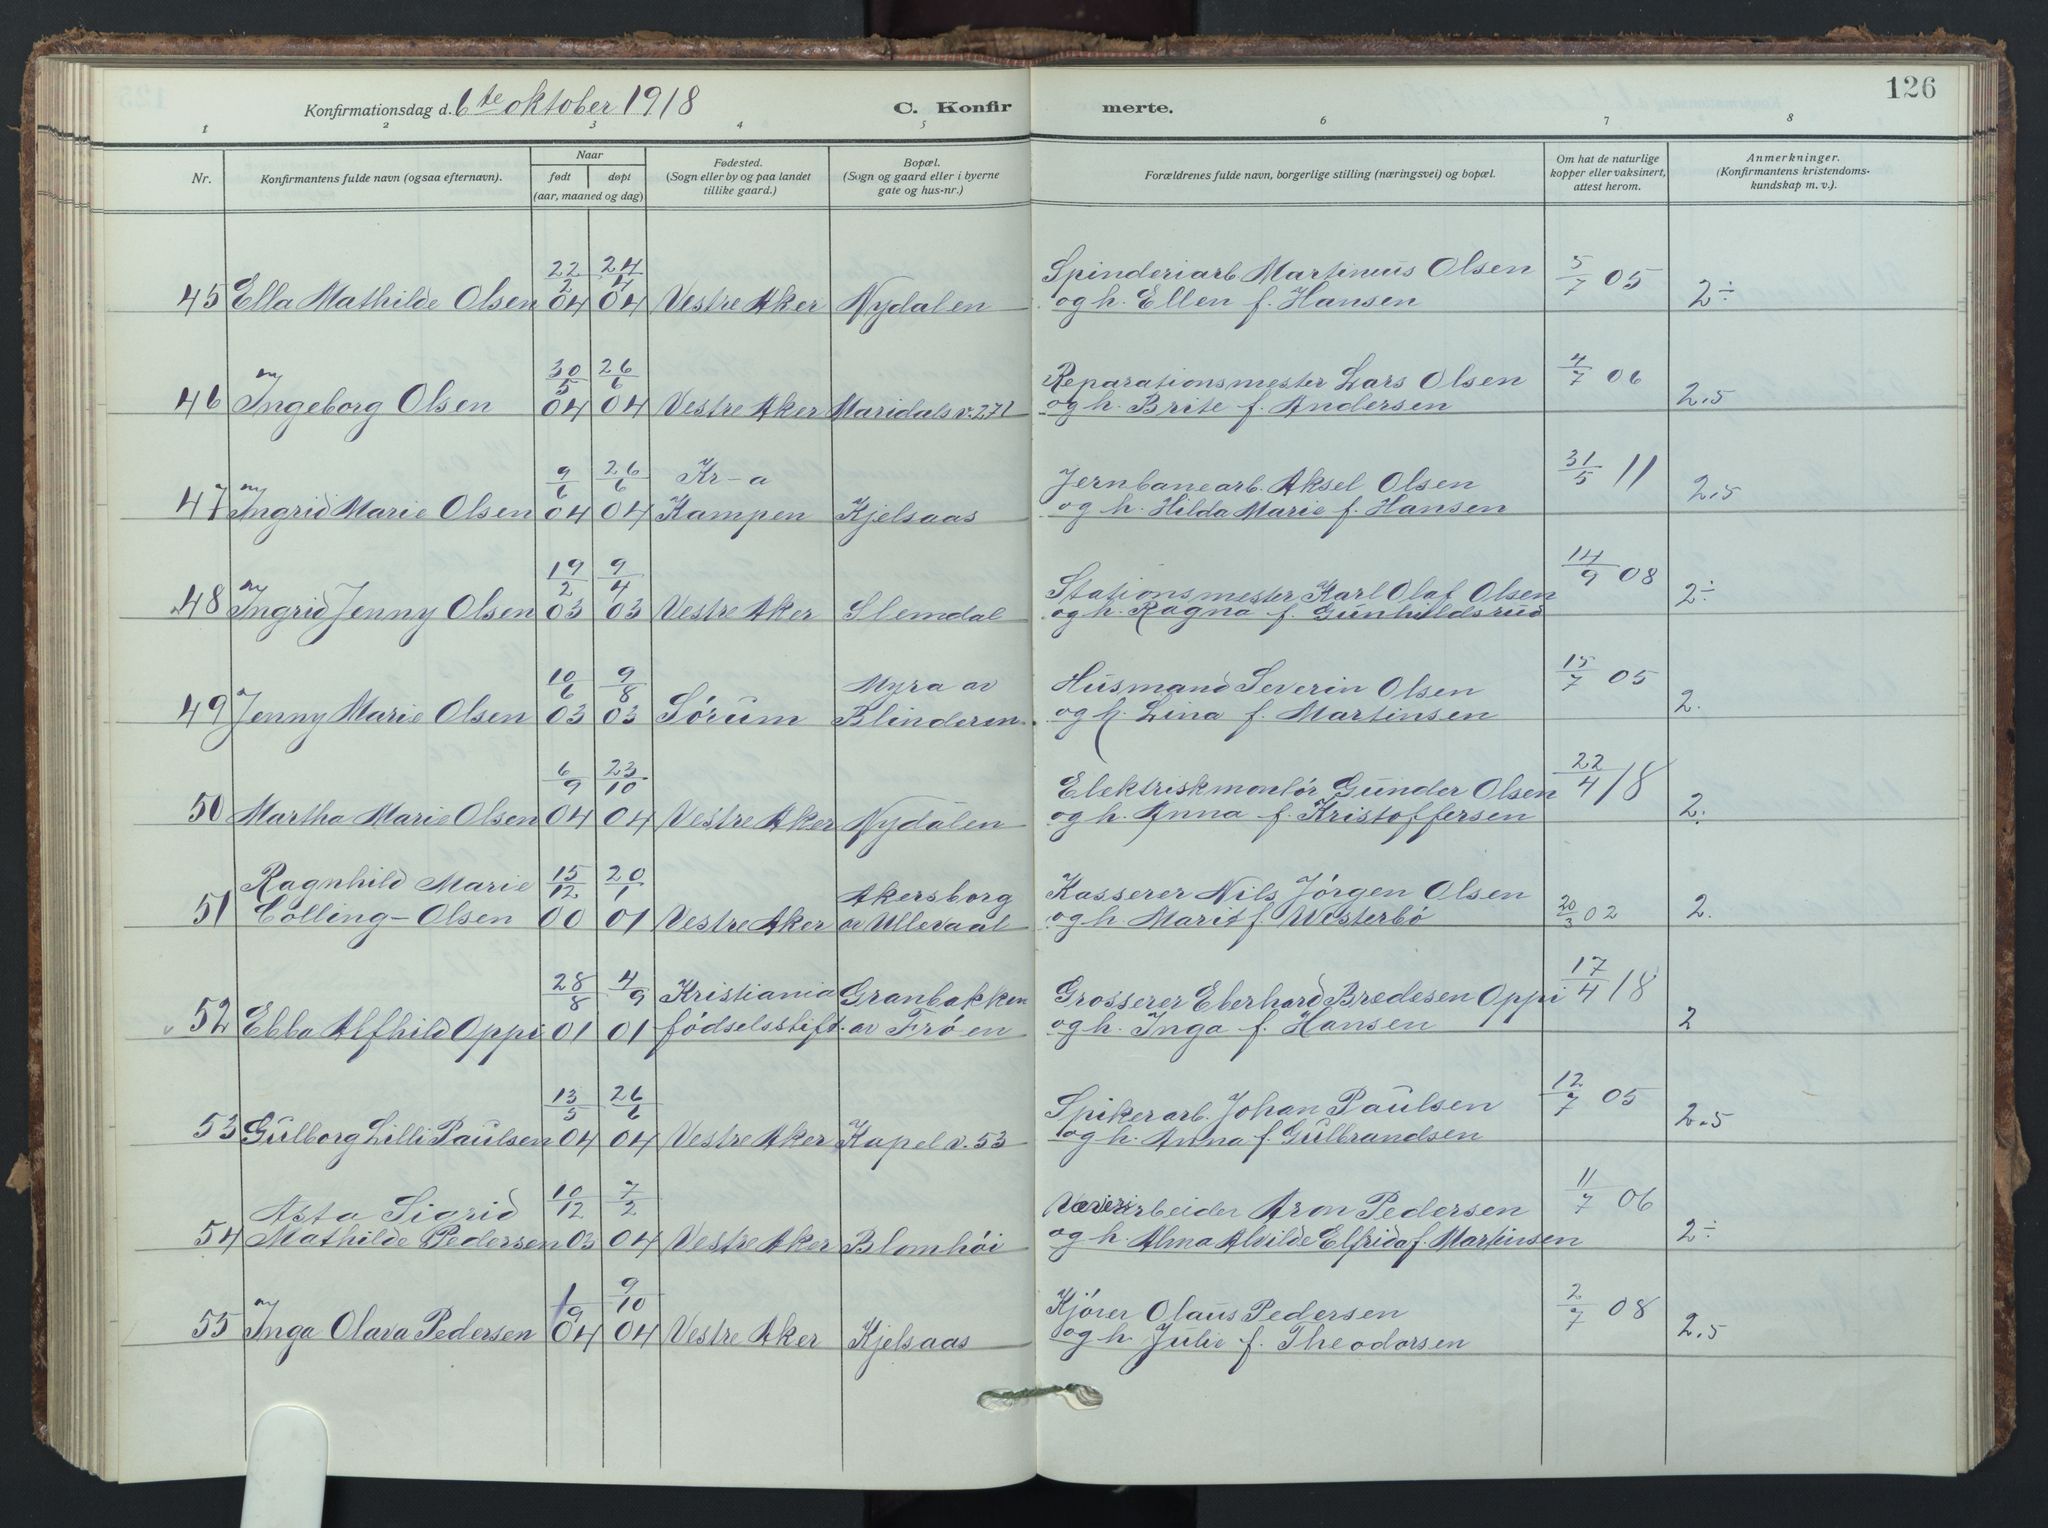 126
Konfirmationsdag d. 6te oktober 1918 C. Konfirmerte.
1 2 3 4 5 6 7 8
Nr.
Konfirmantens fulde navn (ogsaa efternavn).
Naar
født døpt
(aar, maaned og dag)
Fødested.
(Sogn eller by og paa landet
tillike gaard.)
Bopæl.
(Sogn og gaard eller i byerne
gate og hus-nr.)
Forældrenes fulde navn, borgerlige stilling (næringsvei) og bopæl.
Om hat de naturlige
kopper eller vaksinert,
attest herom.
Anmerkninger.
(Konfirmantens kristendoms-
kundskap m. v.)
22/2 24/4 Spinderiarb. Martinius Olsen 5/7 05
45 Ella Mathilde Olsen 04 04 Vestre Aker Nydalen og h. Ellen f. Hansen 2÷
30/5 26/6 Reparationsmester Lars Olsen 4/7 06
46 Ingeborg Olsen 04 04 Vestre Aker Maridals v. 271 og h. Brite f. Andersen 2.5
9/6 26/6 Kr-a Jernbanearb. Aksel Olsen 31/5 11
47 Ingrid Marie Olsen 04 04 Kampen Kjelsaas og h. Hilda Marie f. Hansen 2.5
19/2 9/4 Stationsmester Karl Olaf Olsen 14/9 08
48 Ingrid Jenny Olsen 03 03 Vestre Aker Slemdal og h. Ragna f. Gunhildsrud 2÷
10/6 9/8 Myra av Husmand Severin Olsen 15/7 05
49 Jenny Marie Olsen 03 03 Sørum Blindern og h. Lina f. Martinsen 2.
6/9 23/10 Elektriskmontør Gunder Olsen 22/4 18
50 Martha Marie Olsen 04 04 Vestre Aker Nydalen og h. Anna f. Kristoffersen 2.
Ragnhild Marie 15/12 20/1 Akersborg Kasserer Nils Jørgen Olsen
51 Colling-Olsen 00 01 Vestre Aker av Ullevaal og h. Marit f. Westerbø 20/3 02 2.
28/8 4/9 Kristiania Granbakken Grosserer Eberhard Bredesen Oppi 17/4 18
52 Ebba Alfhild Oppi 01 01 fødselsstift. av Frøen og h. Inga f. Hansen 2
13/5 26/6 Spikerarb. Johan Paulsen 12/7 05
53 Gulborg Lilli Paulsen 04 04 Vestre Aker Kapel v. 53 og h. Anna f. Gulbrandsen 2.5
Asta Sigrid 10/12 7/2 Væveriarbeider Aron Pedersen 11/7 06
54 Mathilde Pedersen 03 04 Vestre Aker Blomhøi og h. Alma Alvilde Elfrida f. Martinsen 2÷
1/9 9/10 Kjører Olaus Pedersen 2/7 08
55 Inga Olava Pedersen 04 04 Vestre Aker Kjelsaas og h. Julie f. Theodorsen 2.5